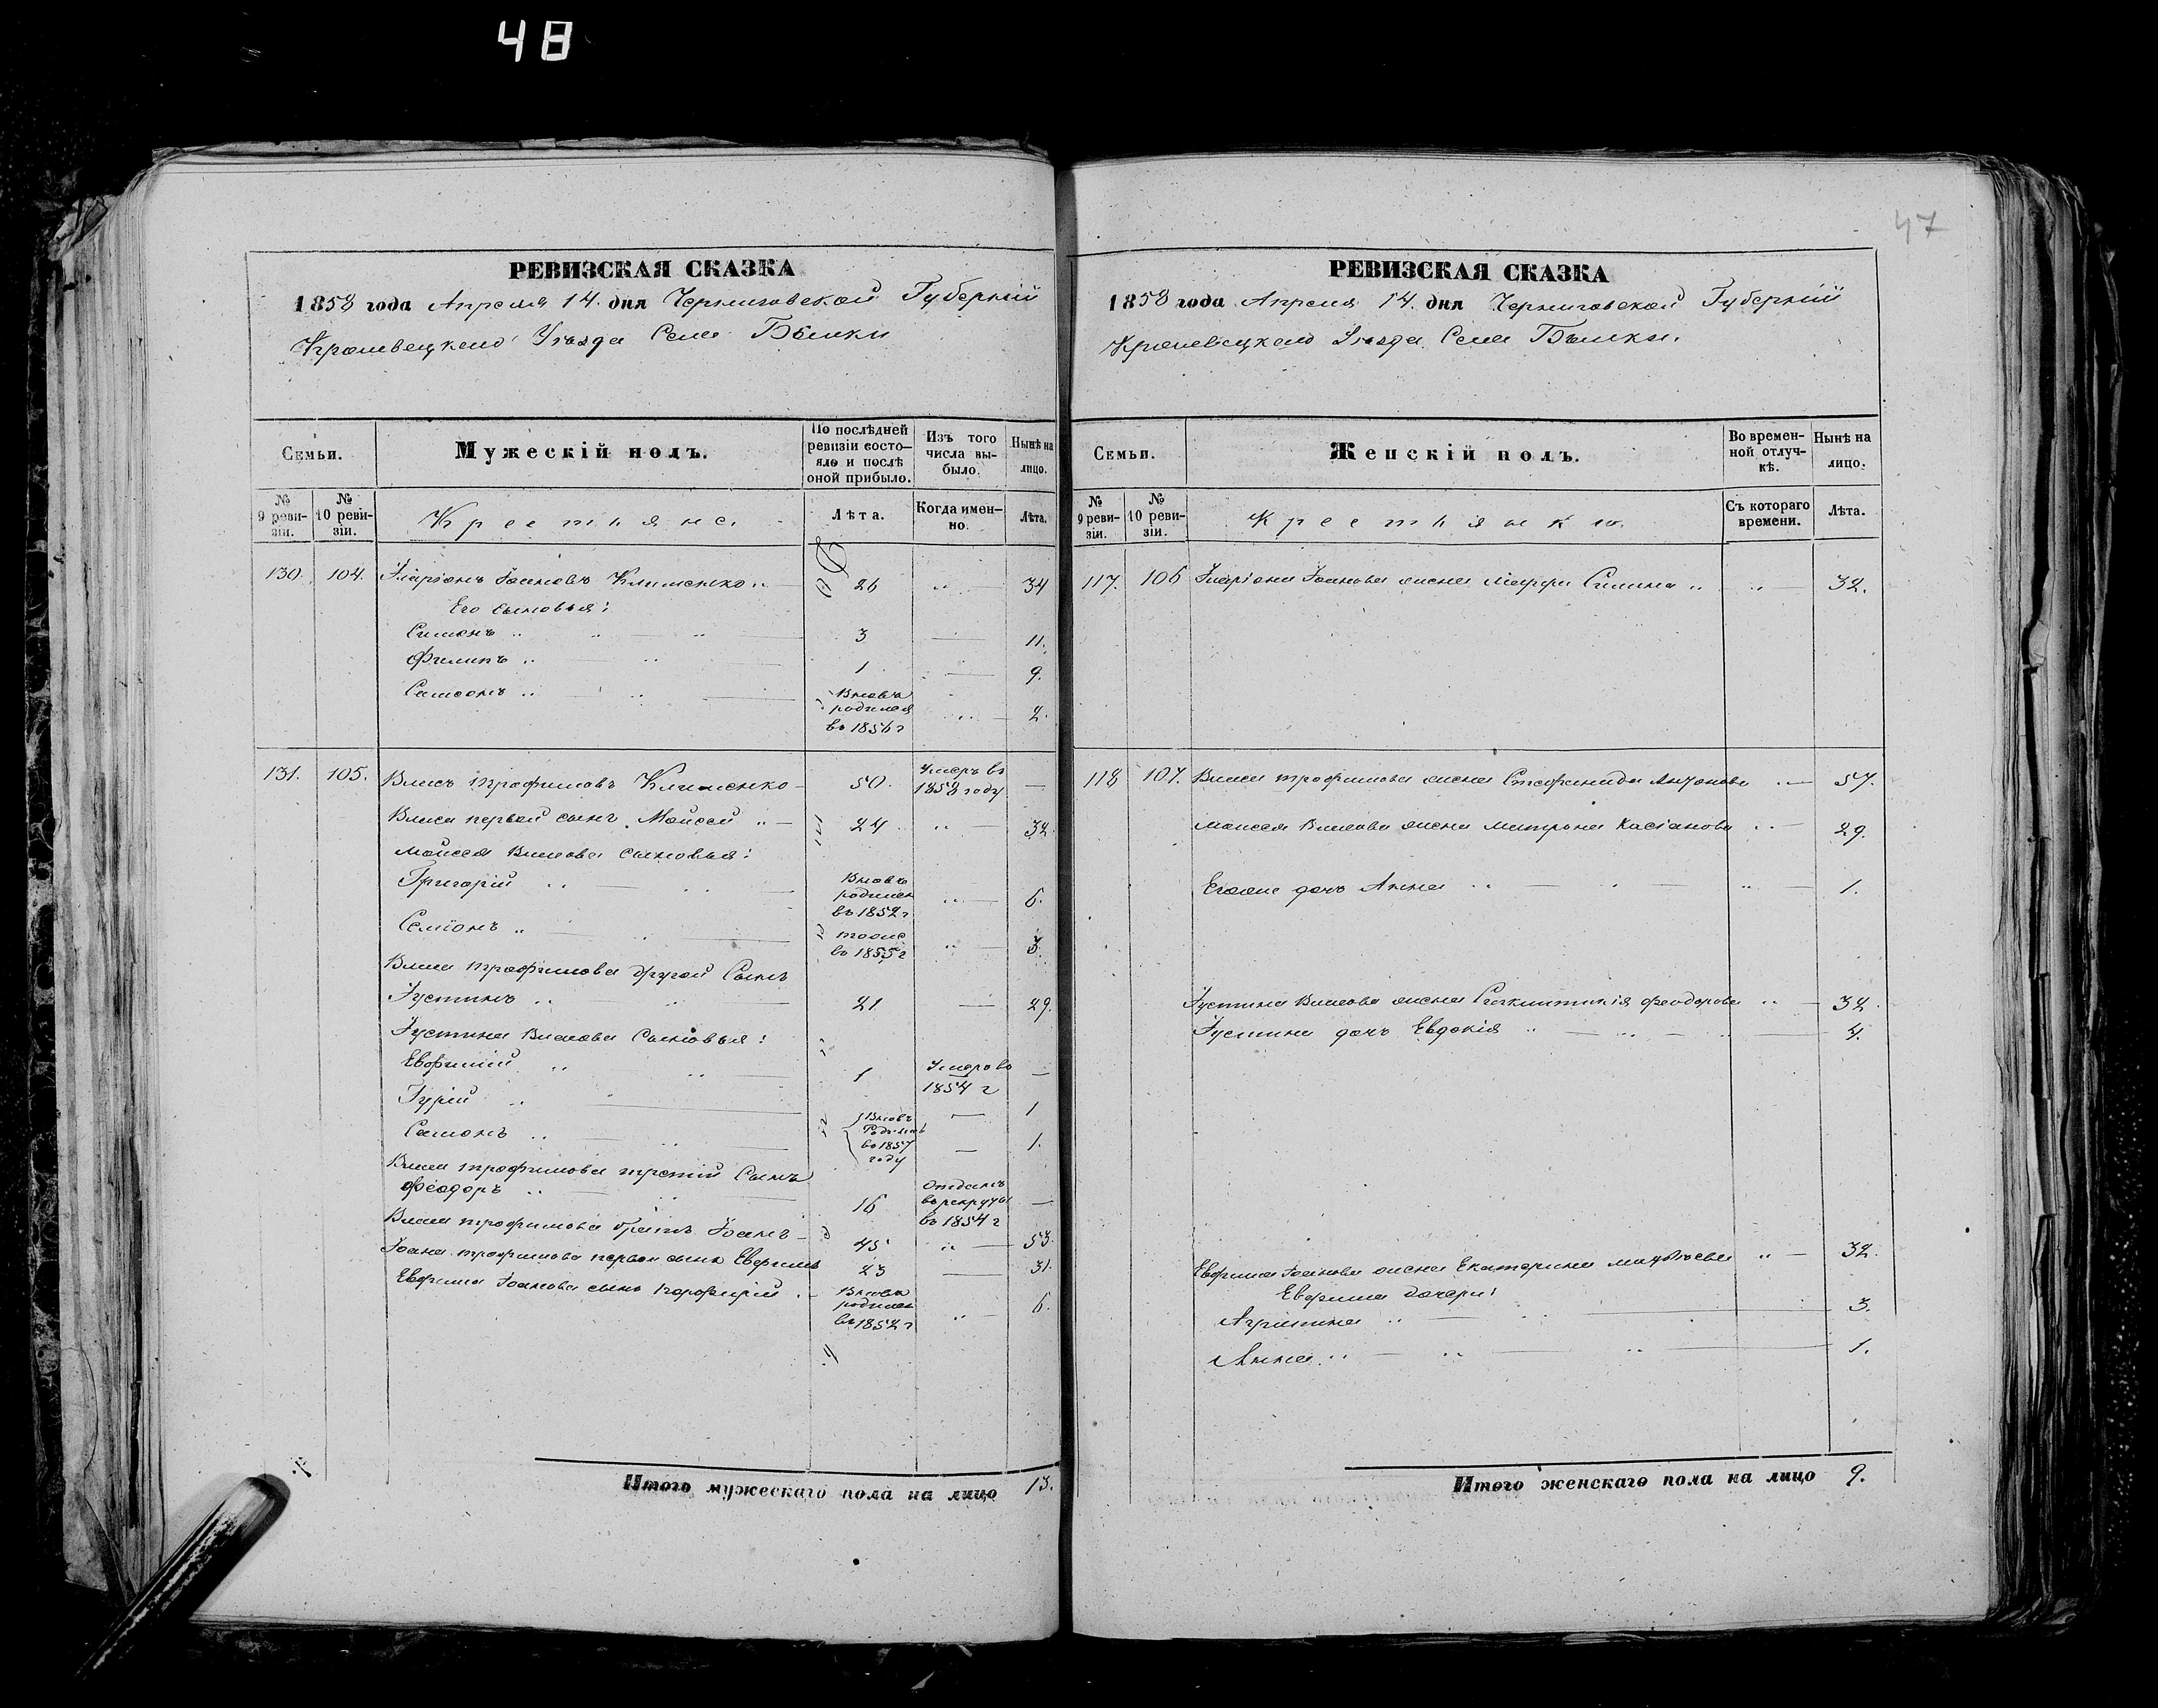 48
47
РЕВИЗСКАЯ СКАЗКА
1858 года Апреля 14. дня Черниговской Губерніи
Кролевецкаго Уезда Села Бѣлки
Семьи.
Мужескій полъ.
По послѣдней ревизіи состояло и послѣ оной прибыло.
Изъ того числа выбыло.
Нынѣ на лицо.
№ 9 ревизіи.
№ 10 ревизіи.
Крестьяне.
Лѣта.
Когда именно.
Лѣта.
130. 104. Иларіонъ Іоановъ Клименко 26 34
Его сыновья:
Симонъ 3 11.
Филипъ 1 9.
Самсонъ Вновь родился въ 1856 г 2.
131. 105. Власъ Трофимовъ Клименко 50. Умеръ въ 1858 году —
Власа первой сынъ Моисей 24 32.
Моисея Власова сыновья:
Григорій Вновь родился въ 1852 г 6.
Семіонъ тоже въ 1855 г 3.
Власа Трофимова другой Сынъ
Іустинъ 21 29.
Іустина Власова Сыновья:
Евфимій 1 Умеръ въ 1854 г —
Гурій 1
Самонъ Вновь Родились въ 1857 году 1.
Власа Трофимова третій Сынъ
Феодоръ 16 Отданъ в рекруты въ 1854 г —
Власа Трофимова братъ Іоанъ 45 53.
Іоана Трофимова первой сынъ Евфимъ 23 31.
Евфима Іоанова сынъ Порфирій Вновь родился въ 1852 г 6.
Итого мужескаго пола на лицо 13.
РЕВИЗСКАЯ СКАЗКА
1858 года Апреля 14. дня Черниговской Губерніи
Кролевецкаго Уезда Села Бѣлки.
Семьи.
Женскій полъ.
Во временной отлучкѣ.
Нынѣ на лицо.
№ 9 ревизіи.
№ 10 ревизіи.
Крестьянки.
Съ котораго времени.
Лѣта.
117. 106 Иларіона Іоанова жена Марфа Силина 32.
118 107. Власа Трофимова жена Стефанида Антонова 57.
Моисея Власова жена Матрона Касіанова 29.
Егоже дочь Анна 1.
Іустина Власова жена Феодорова 32.
Іустина дочь Евдокія 4.
Евфима Іоанова жена Екатерина 32.
Евфима Дочери:
Агрипина 3.
Анна 1.
Итого женскаго пола на лицо 9.